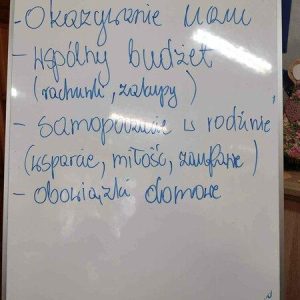 - Okazywanie
- wspólny budżet
(rachunki, zakupy)
- samopoczucie w rodzinie
(wsparcie, miłość, zaufanie)
- obowiązki domowe